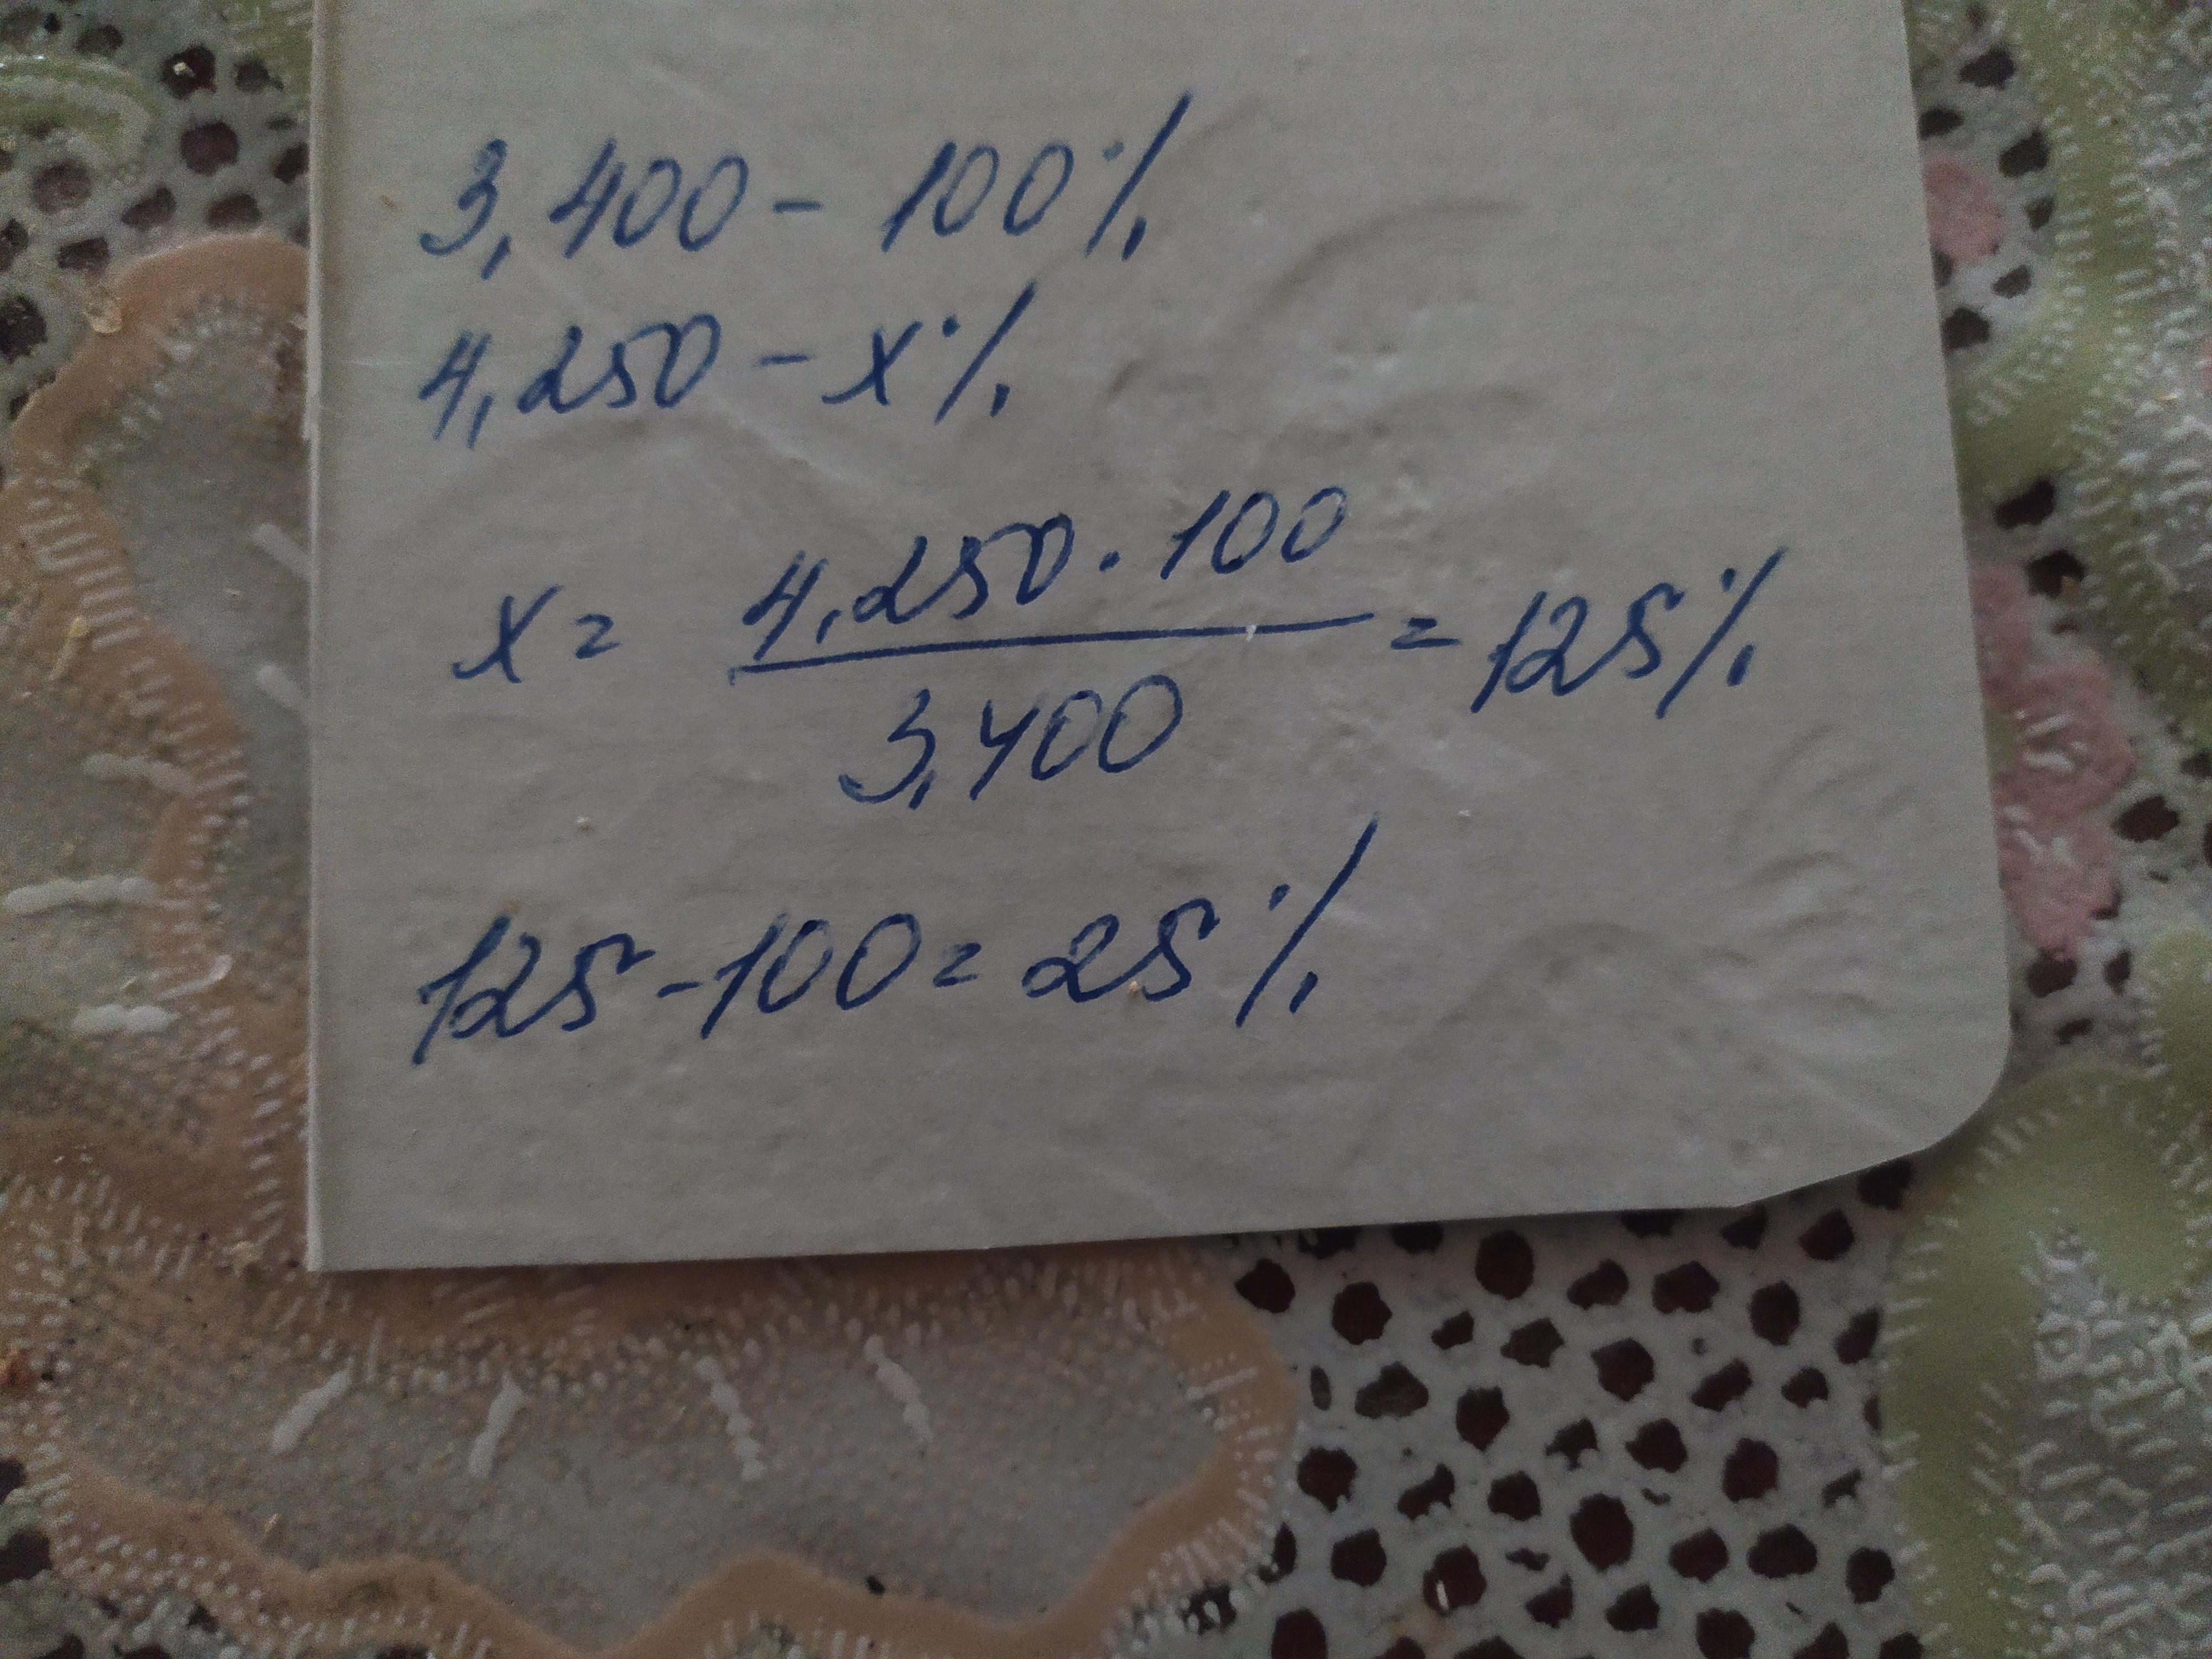 3,400 - 100%
4,250 - x%
x = 4,250 · 100 / 3,400 = 125%
125 - 100 = 25%